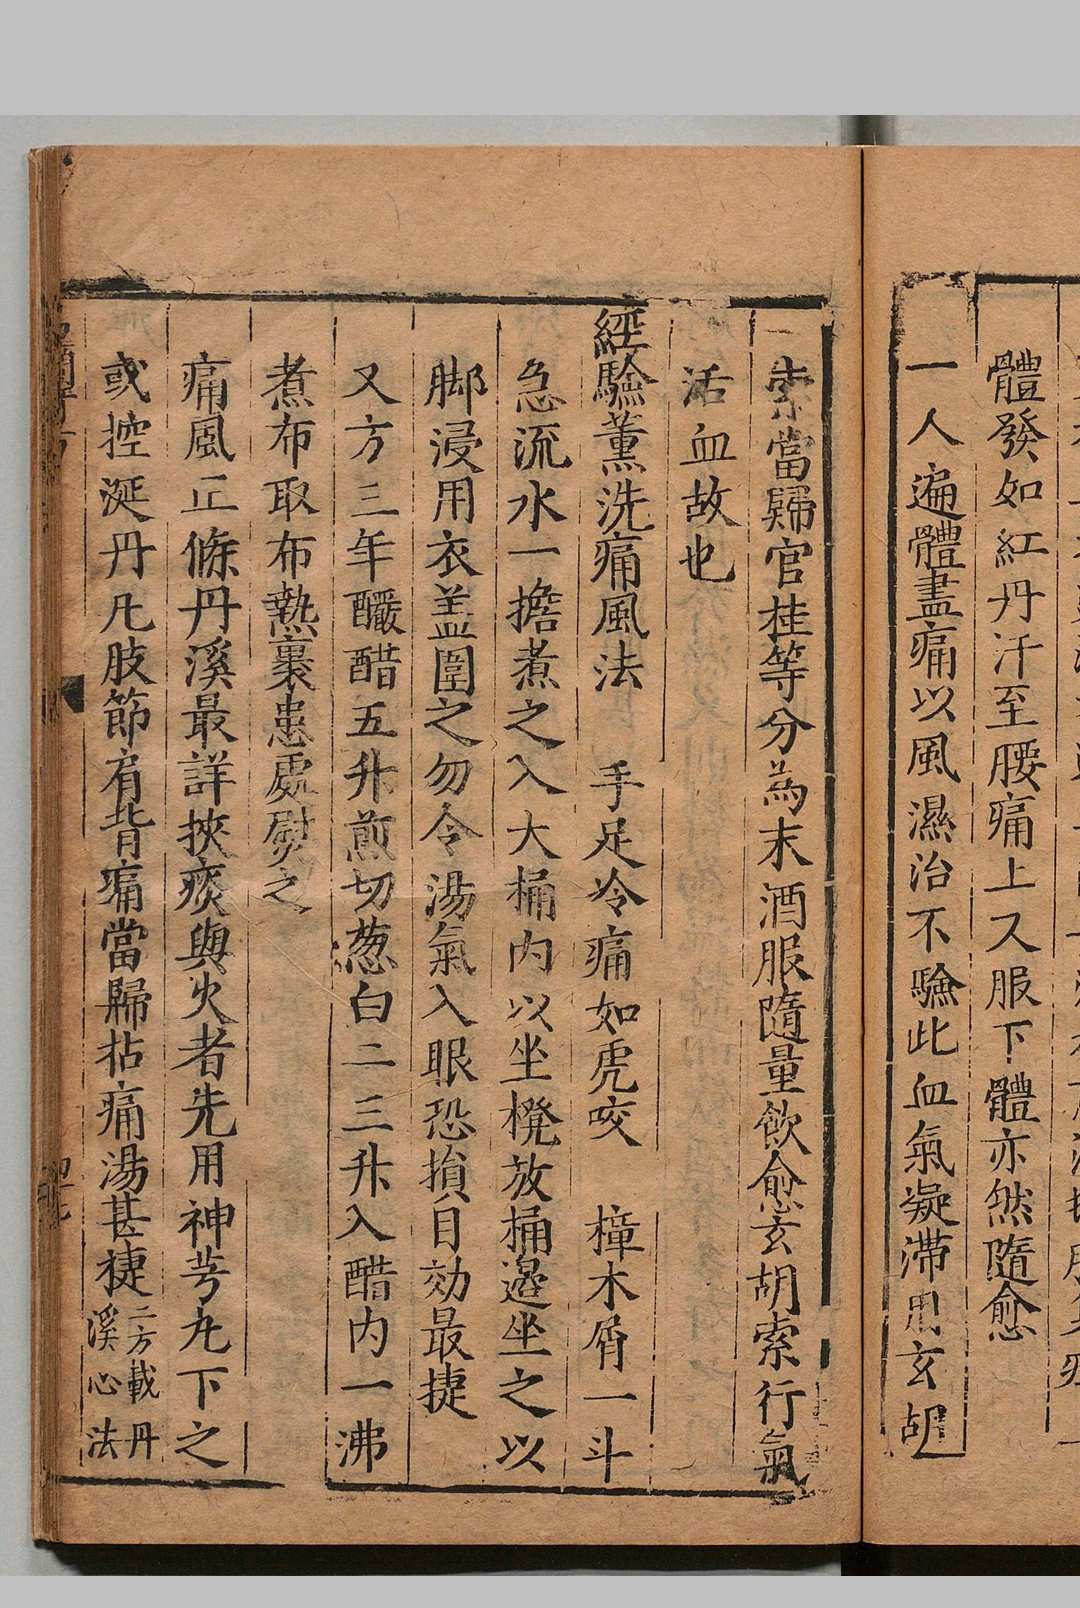 體發如紅丹汗至腰痛上又服下體亦然隨愈
一人遍體盡痛以風濕治不驗此血氣凝滯用玄胡
索當歸官桂等分為末酒服隨量飲愈玄胡索行氣
活血故也
經驗薰洗痛風法 手足冷痛如虎咬 樟木屑一斗
急流水一擔煮之入大桶内以坐櫈放桶邉坐之以
脚浸用衣盖圍之勿令湯氣入眼恐損目効最捷
又方三年釅醋五升煎切葱白二三升入醋内一沸
煮布取布熱裹患處熨之
痛風正條丹溪最詳挾痰與火者先用神芎丸下之
或控涎丹凡肢節肩背痛當歸拈痛湯甚捷二方載丹
溪心法